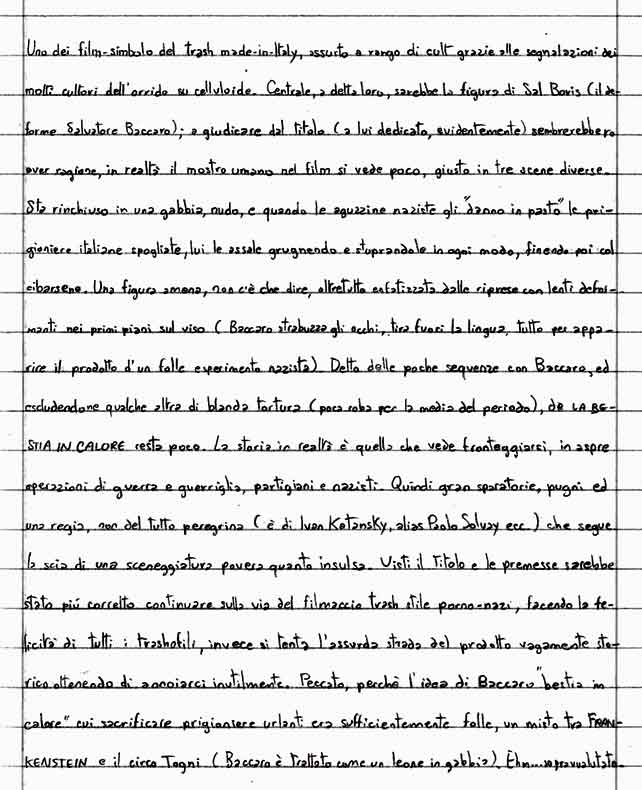 Uno dei film-simbolo del trash made-in-Italy, assurto a rango di cult grazie alle segnalazioni dei
molti cultori dell'orrido su celluloide. Centrale, a detta loro, sarebbe la figura di Sal Boris (il de-
forme Salvatore Baccaro); a giudicare dal titolo (a lui dedicato, evidentemente) sembrerebbero
aver ragione, in realtà il mostro umano nel film si vede poco, giusto in tre scene diverse.
Sta rinchiuso in una gabbia, nudo, e quando le aguzzine naziste gli "danno in pasto" le pri-
gioniere italiane spogliate, lui le assale grugnendo e stuprandole in ogni modo, finendo poi col
cibarsene. Una figura amena, non c'è che dire, oltretutto enfatizzata dalle riprese con lenti defor-
manti nei primi piani sul viso (Baccaro strabuzza gli occhi, tira fuori la lingua, tutto per appa-
rire il prodotto d'un folle esperimento nazista). Detto delle poche sequenze con Baccaro, ed
escludendone qualche altra di blanda tortura (poca roba per la media del periodo), de LA BE-
STIA IN CALORE resta poco. La storia in realtà è quella che vede fronteggiarsi, in aspre
operazioni di guerra e guerriglia, partigiani e nazisti. Quindi gran sparatorie, pugni ed
una regia, non del tutto peregrina (è di Ivan Katansky, alias Paolo Solvay ecc.) che segue
la scia di una sceneggiatura povera quanto insulsa. Visti il titolo e le premesse sarebbe
stato più corretto continuare sulla via del filmaccio trash stile porno-nazi, facendo la fe-
licità di tutti i trashofili, invece si tenta l'assurda strada del prodotto vagamente sto-
rico ottenendo di annoiarci inutilmente. Peccato, perchè l'idea di Baccaro "bestia in
calore" cui sacrificare prigioniere urlanti era sufficientemente folle, un misto tra FRAN-
KENSTEIN e il circo Togni (Baccaro è trattato come un leone in gabbia). Ehm... sopravvalutato.